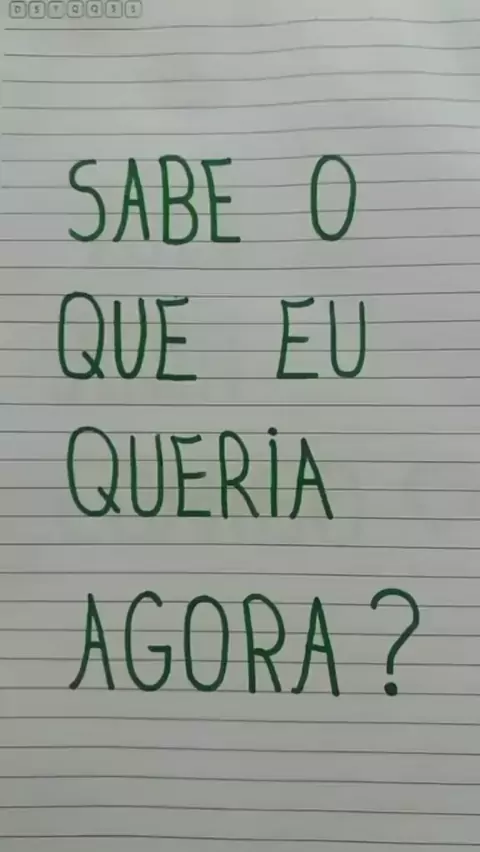 SABE O
QUE EU
QUERIA
AGORA?